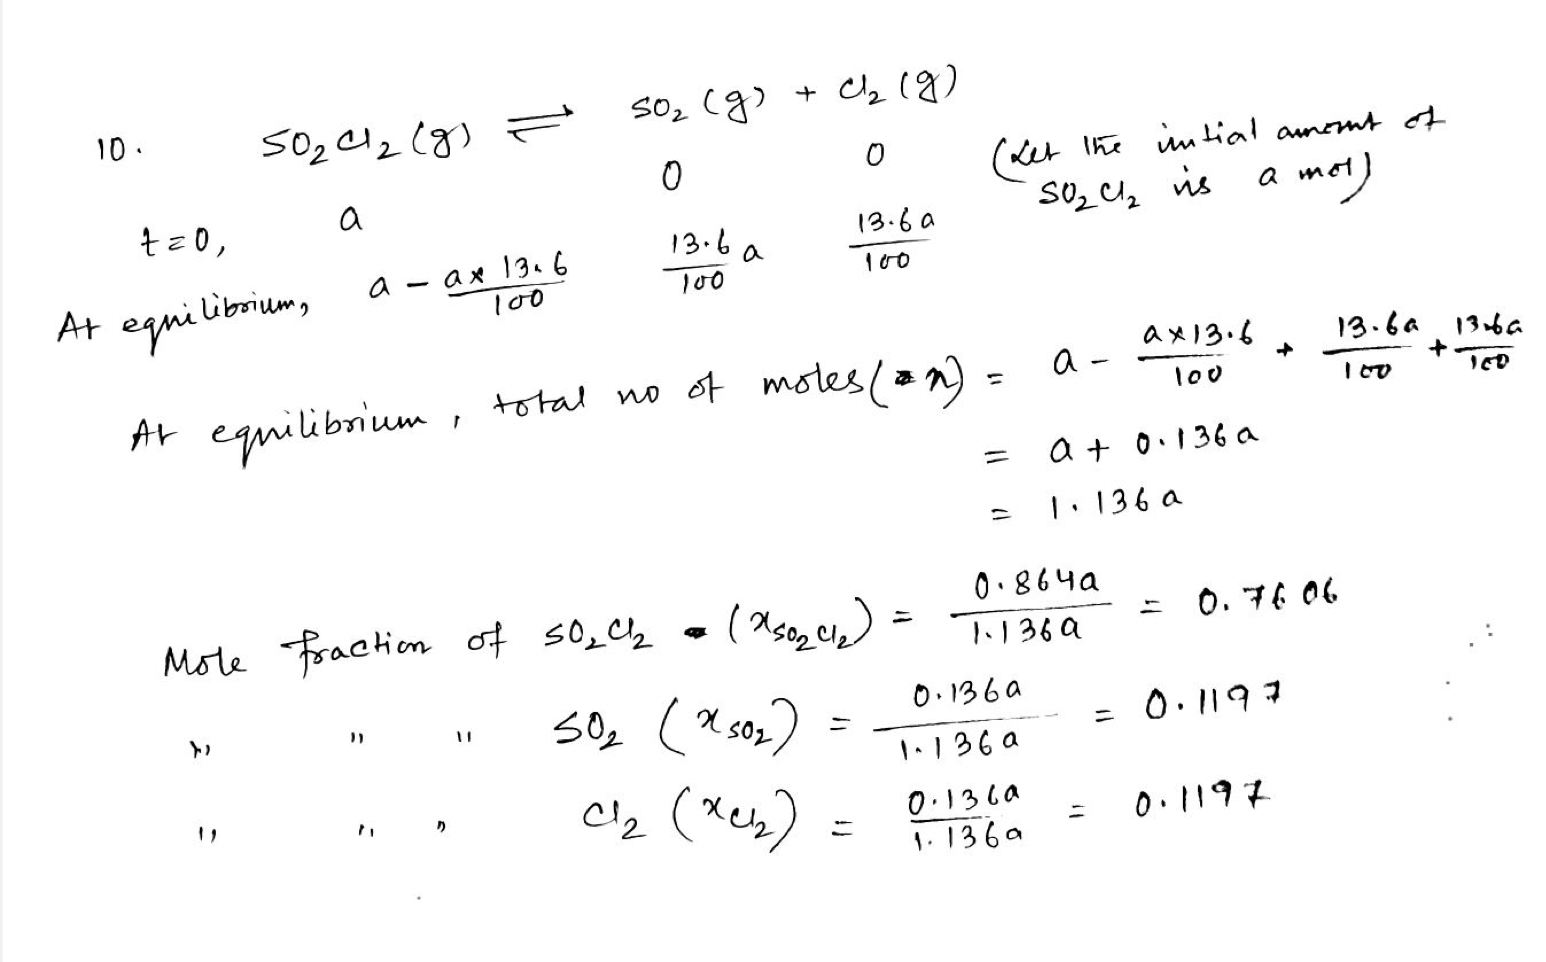 10. SO₂Cl₂(g) ⇌ SO₂(g) + Cl₂(g)
t=0, a 0 0 (Let the intial amount of
SO₂Cl₂ is a mol)
At equilibrium, a - a×13.6/100 13.6/100 a 13.6a/100
At equilibrium, total no of moles(n) = a - a×13.6/100 + 13.6a/100 + 13.6a/100
= a + 0.136a
= 1.136a
Mole fraction of SO₂Cl₂ (xSO₂Cl₂) = 0.864a/1.136a = 0.7606
" " " SO₂ (xSO₂) = 0.136a/1.136a = 0.1197
" " " Cl₂ (xCl₂) = 0.136a/1.136a = 0.1197